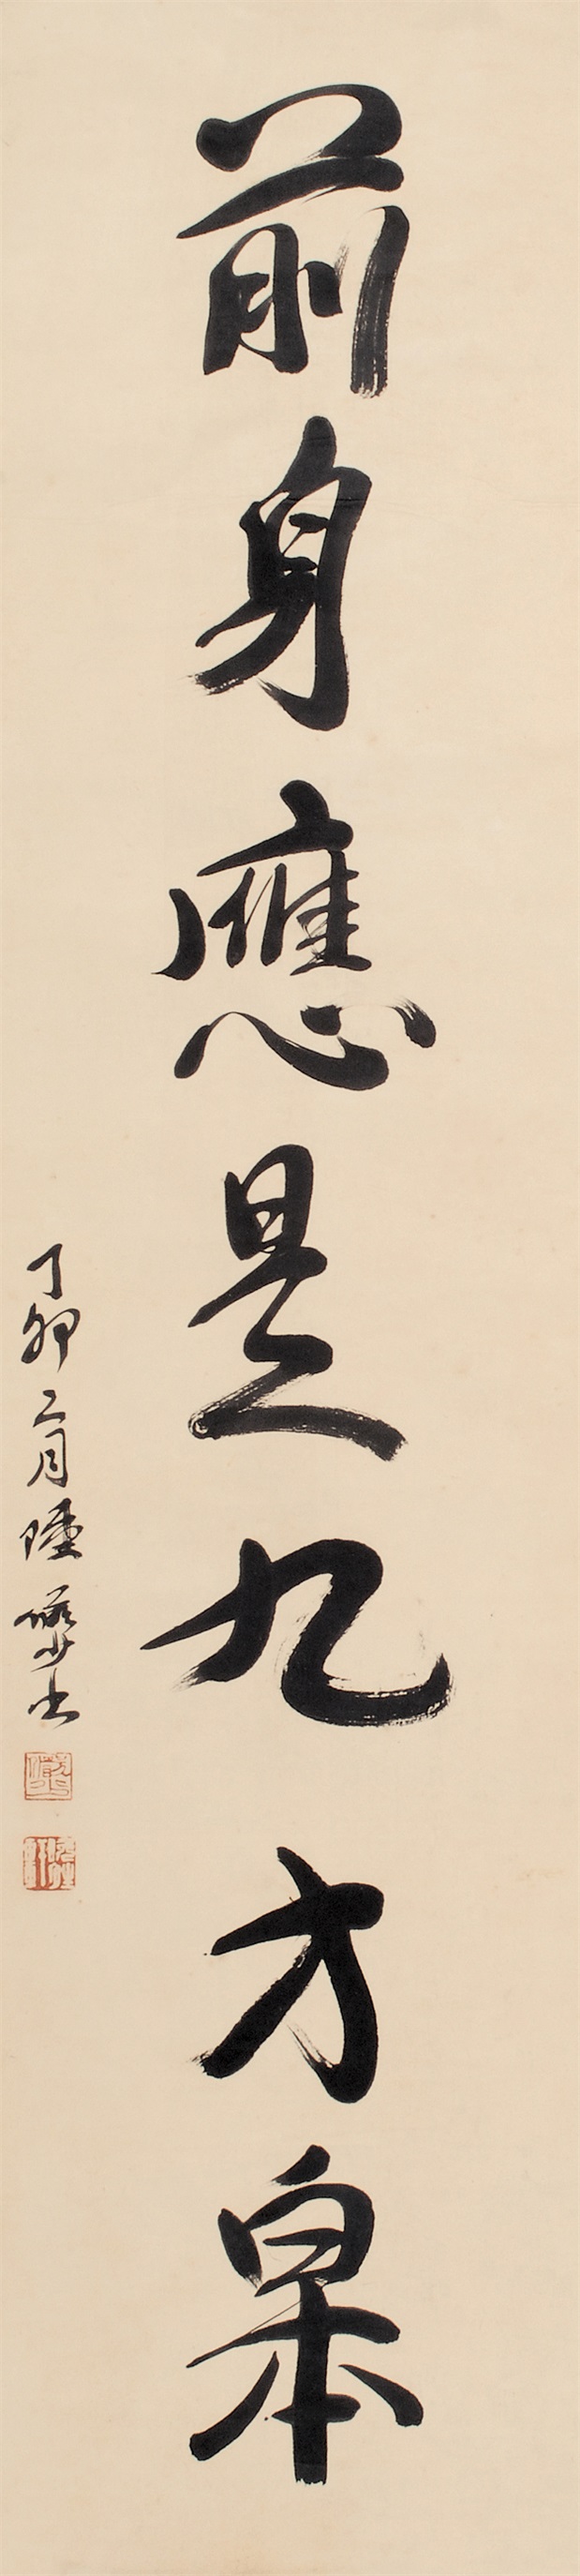 前身應是九方皋
丁卯二月陸儼少書